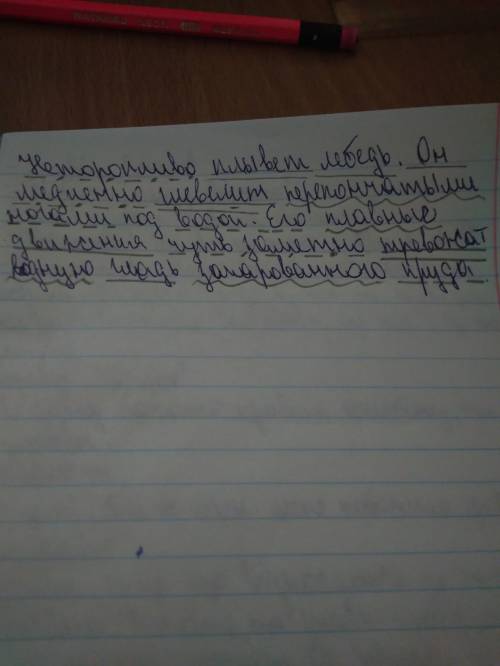 Неторопливо плывет лебедь. Он
медленно шевелит перепончатыми
ногами под водой. Его плавные
движения чуть заметно тревожат
водную гладь зачарованного пруда.